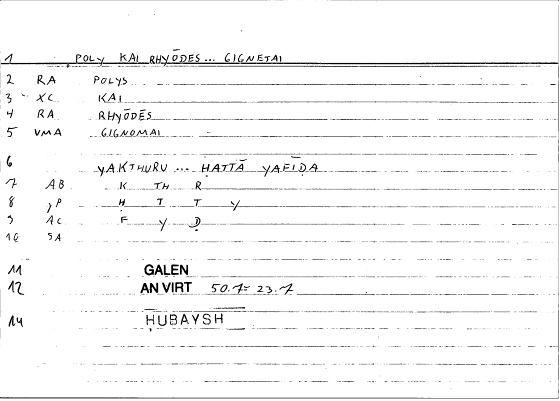 1 POLY KAI RHYŌDES... GIGNETAI
2 RA POLYS
3 XC KAI
4 RA RHYŌDĒS
5 VMA GIGNOMAI
6 YAKTHURU ... ḤATTĀ YAFĪḌA
7 AB K TH R
8 JP Ḥ T T Y
9 AC F Y Ḍ
10 SA
11 GALEN
12 AN VIRT 50.7= 23.7
14 ḤUBAYSH